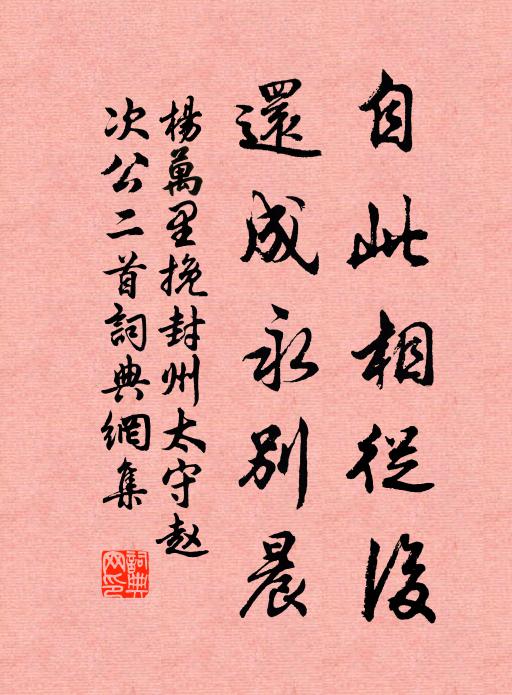 自此相從後
還成永別晨
楊萬里挽封州太守赵
次公二首詞典網集
詞典
网印